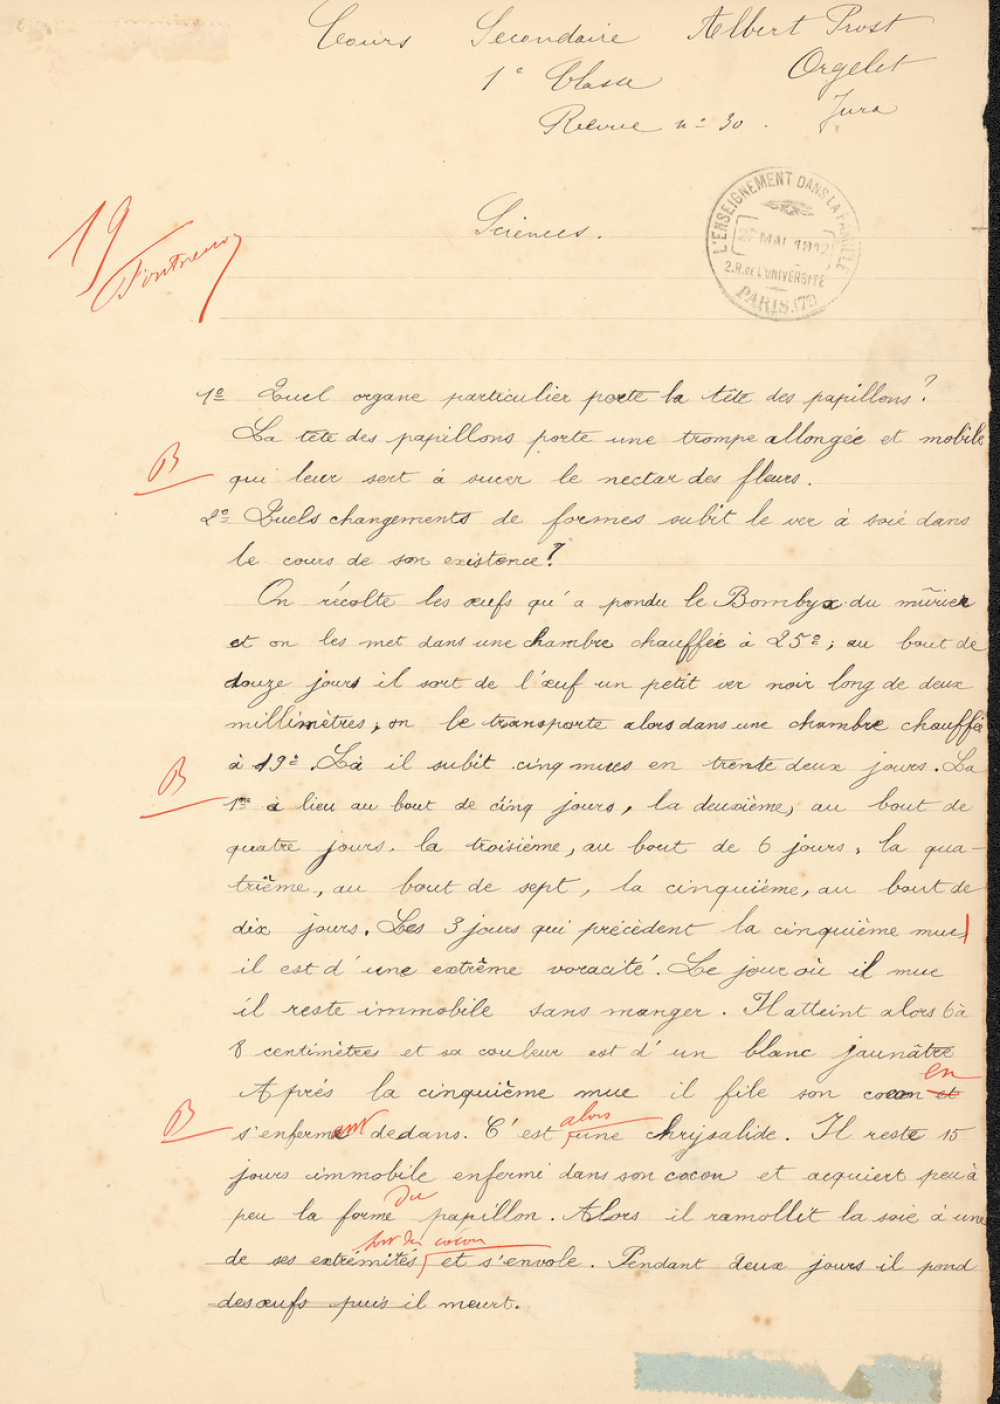 Cours Secondaire Albert Prost
1e Classe Orgelet
Revue n° 30. Jura
19
Sciences.
L'ENSEIGNEMENT DANS LA FAMILLE
27 MAI 1912
2.R. DE L'UNIVERSITÉ
PARIS (7e)
1° Quel organe particulier porte la tête des papillons?
La tête des papillons porte une trompe allongée et mobile
B qui leur sert à sucer le nectar des fleurs.
2° Quels changements de formes subit le ver à soie dans
le cours de son existence?
On récolte les œufs qu'a pondu le Bombyx du mûrier
et on les met dans une chambre chauffée à 25°; au bout de
douze jours il sort de l'œuf un petit ver noir long de deux
millimètres; on le transporte alors dans une chambre chauffée
à 19°. Là il subit cinq mues en trente deux jours. La
B 1re à lieu au bout de cinq jours, la deuxième, au bout de
quatre jours. la troisième, au bout de 6 jours, la qua-
trième, au bout de sept, la cinquième, au bout de
dix jours. Les 3 jours qui précèdent la cinquième mue
il est d'une extrême voracité. Le jour où il mue
il reste immobile sans manger. Il atteint alors 6 à
8 centimètres et sa couleur est d'un blanc jaunâtre
en
Après la cinquième mue il file son cocon et
alors
B s'enfermant dedans. C'est une chrysalide. Il reste 15
jours immobile enfermé dans son cocon et acquiert peu à
du
peu la forme papillon. Alors il ramollit la soie à une
sort du cocon
de ses extrémités, et s'envole. Pendant deux jours il pond
des œufs puis il meurt.